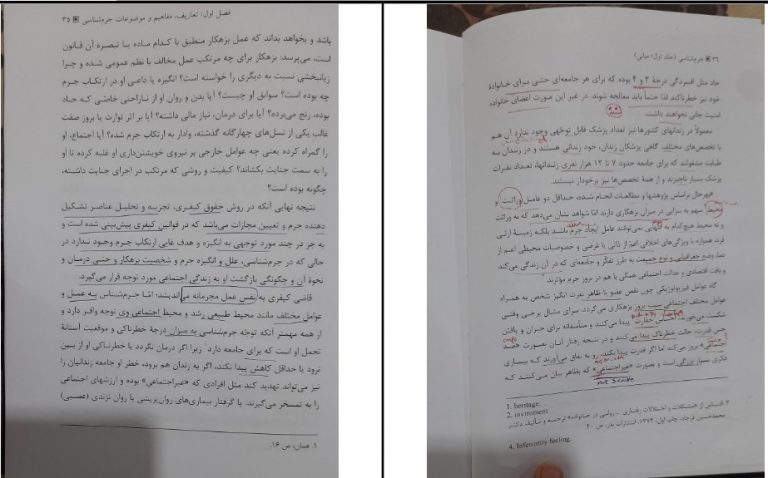 فصل اول/ تعاریف، مفاهیم و موضوعات جرم‌شناسی ▣ ۳۵
باشد و بخواهد بداند که عمل بزهکار منطبق با کدام ماده یا تبصره آن قانون
است، می‌پرسد: بزهکار برای چه مرتکب عمل مخالف با نظم عمومی شده و چرا
زیانبخشی نسبت به دیگری را خواسته است؟ انگیزه یا داعی او در ارتکاب جرم
چه بوده است؟ سوابق او چیست؟ آیا بدن و روان او از ناراحتی خاصی که حاد
بوده، رنج می‌برده؟ آیا برای درمان، نیاز مالی داشته؟ آیا بر اثر توارث یا بروز صفت
غالب یکی از نسل‌های چهارگانه گذشته، وادار به ارتکاب جرم شده؟ آیا اجتماع، او
را گمراه کرده یعنی چه عوامل خارجی بر نیروی خویشتن‌داری او غلبه کرده تا او
را به سمت جنایت بکشاند؟ کیفیت و روشی که مرتکب در اجرای جنایت داشته،
چگونه بوده است؟
نتیجه نهایی آنکه در روش حقوق کیفری، تجزیه و تحلیل عناصر تشکیل
دهنده جرم و تعیین مجازات می‌باشد که در قوانین کیفری پیش‌بینی شده است و
به جز در چند مورد توجهی به انگیزه و هدف غایی ارتکاب جرم وجود ندارد در
حالی که در جرم‌شناسی، علل و انگیزه جرم و شخصیت بزهکار و حتی درمان و
نحوه آن و چگونگی بازگشت او به زندگی اجتماعی مورد توجه قرار می‌گیرد.
قاضی کیفری به نفس عمل مجرمانه می‌اندیشد؛ امّا جرم‌شناس به عمل و
عوامل مختلف مانند محیط طبیعی رشد و محیط اجتماعی وی توجه وافر دارد و
از همه مهمتر آنکه توجّه جرم‌شناسی به میزان درجهٔ خطرناکی و موقعیت آستانهٔ
تحمل او است که برای جامعه دارد زیرا اگر درمان نگردد یا خطرناکی او از بین
نرود یا حداقل کاهش پیدا نکند، اگر به زندان هم برود، خطر او جامعه زندانیان را
نیز می‌تواند تهدید کند مثل افرادی که «غیراجتماعی» بوده و ارزشهای اجتماعی
را به تمسخر می‌گیرند. یا گرفتار بیماری‌های روان‌پریشی یا روان نژندی (عصبی)
۱. همان، ص ۱۶.
۳۶ ▣ جرم‌شناسی (جلد اول: مبانی)
حاد مثل افسردگی درجهٔ ۳ و ۴ بوده که برای هر جامعه‌ای حتی برای خانوادهٔ
خود نیز خطرناکند لذا حتماً باید معالجه شوند. در غیر این صورت اعضای خانواده
امنیت جانی نخواهند داشت.
معمولاً در زندانهای کشورها نیز تعداد پزشک قابل توجّهی وجود ندارد آن هم
با تخصص‌های مختلف گاهی پزشکان زندان، خود زندانی هستند و در زندان به
طبابت مشغولند که برای جامعه حدود ۷ تا ۱۲ هزار نفری زندانها، تعداد نفرات
پزشک بسیار ناچیزند و از همهٔ تخصص‌ها نیز برخوردار نیستند.
بهرحال براساس پژوهشها و مطالعات انجام شده، حداقل دو عامل وراثت و
محیط سهم به سزایی در میزان بزهکاری دارند امّا شواهد نشان می‌دهد که نه وراثت
و نه محیط هیچ‌کدام به تنهایی نمی‌توانند عامل ایجاد جرم باشند بلکه زمینهٔ ارثی
فرد، همواره با ویژگی‌های اخلاقی اعم از ذاتی یا عرضی و خصوصیات محیطی اعم از
وضع جغرافیایی و نوع جمعیت به طرز تفکّر و جامعه‌ای که در آن زندگی می‌کند
و بافت اقتصادی و عدالت اجتماعی همگی با هم در بروز جرم مؤثرند.
گاه عوامل فیزیولوژیکی چون نقص عضو یا ظاهر نفرت انگیز شخص به همراه
عوامل مختلف اجتماعی سبب بروز بزهکاری می‌گردد. برای مثال برخی وقتی
شکست می‌خورند، احساس حقارت پیدا می‌کنند و متأسفانه برای جبران و یافتن
حس قدرت، حالت خطرناک پیدا می‌کنند و در نتیجه رفتار آنان بصورت «ضد
اجتماعی» بروز می‌کند اما اگر قدرت پیدا نکند، رو به نفاق می‌آورند که بیماری
فکری بسیار بزرگی است و بصورت «غیراجتماعی» که بظاهر بیان می‌کنند که
not sociable
1. heritage.
2. invironment
۳. اقتباس از «مشکلات و اختلالات رفتاری - روانی در خانواده» ترجمه و تألیف دکتر
محمدحسین فرجاد، چاپ اول، ۱۳۷۲، انتشارات بدر، ص ۴۰.
4. Inferiority feeling.